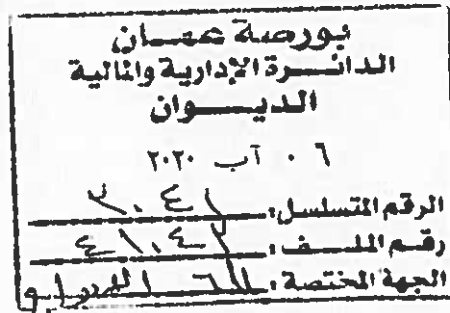 بورصة عمان
الدائرة الإدارية والمالية
الديوان
٠٦ آب ٢٠٢٠
الرقم المتسلسل:
رقم الملف: ٤١٠٤٢
الجهة المختصة: